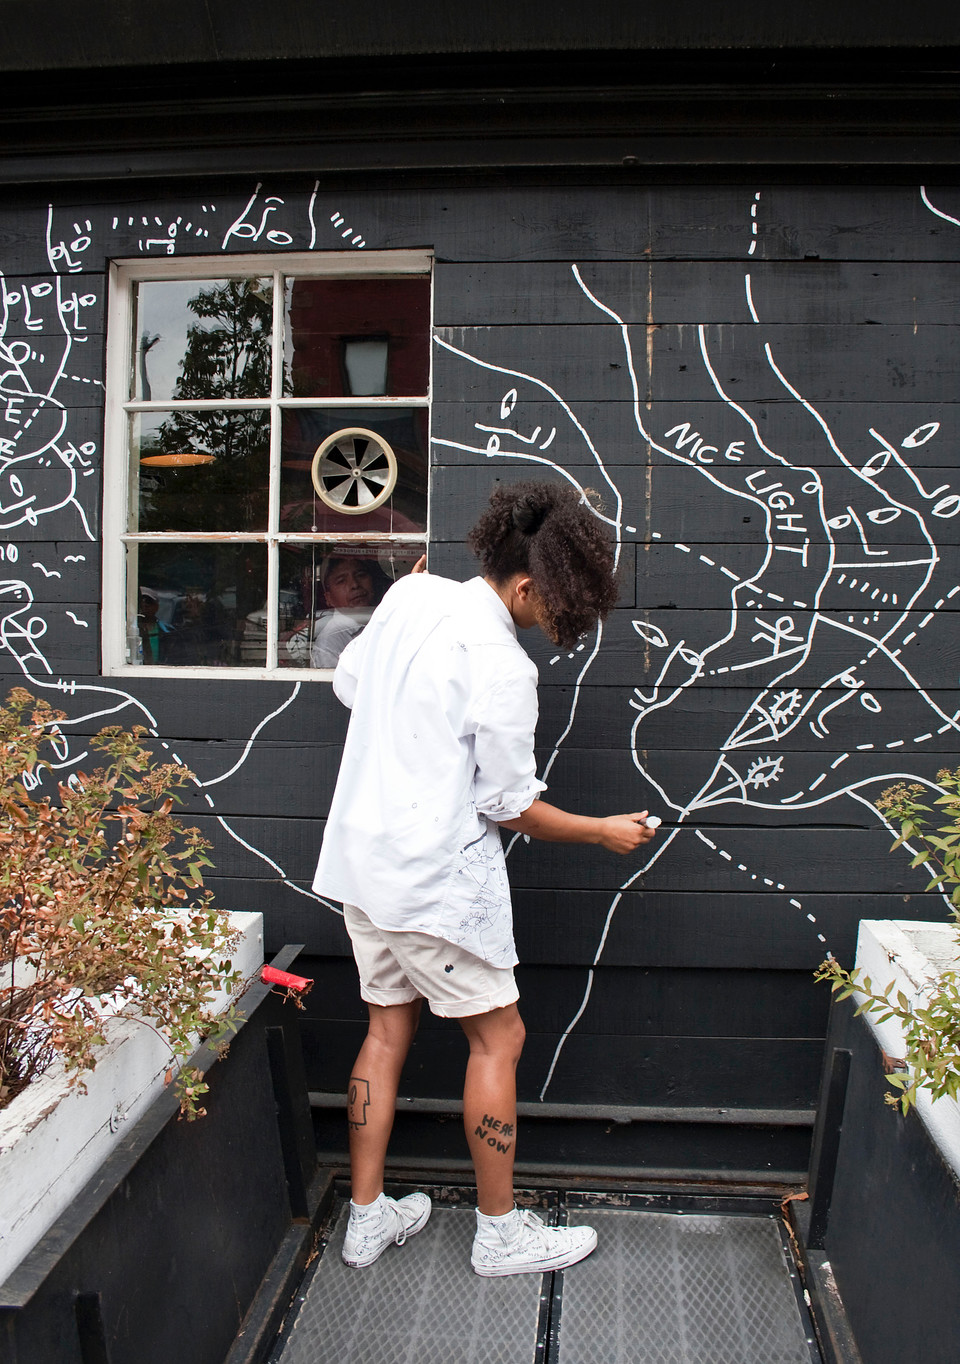 NICE
LIGHT
HERE
NOW